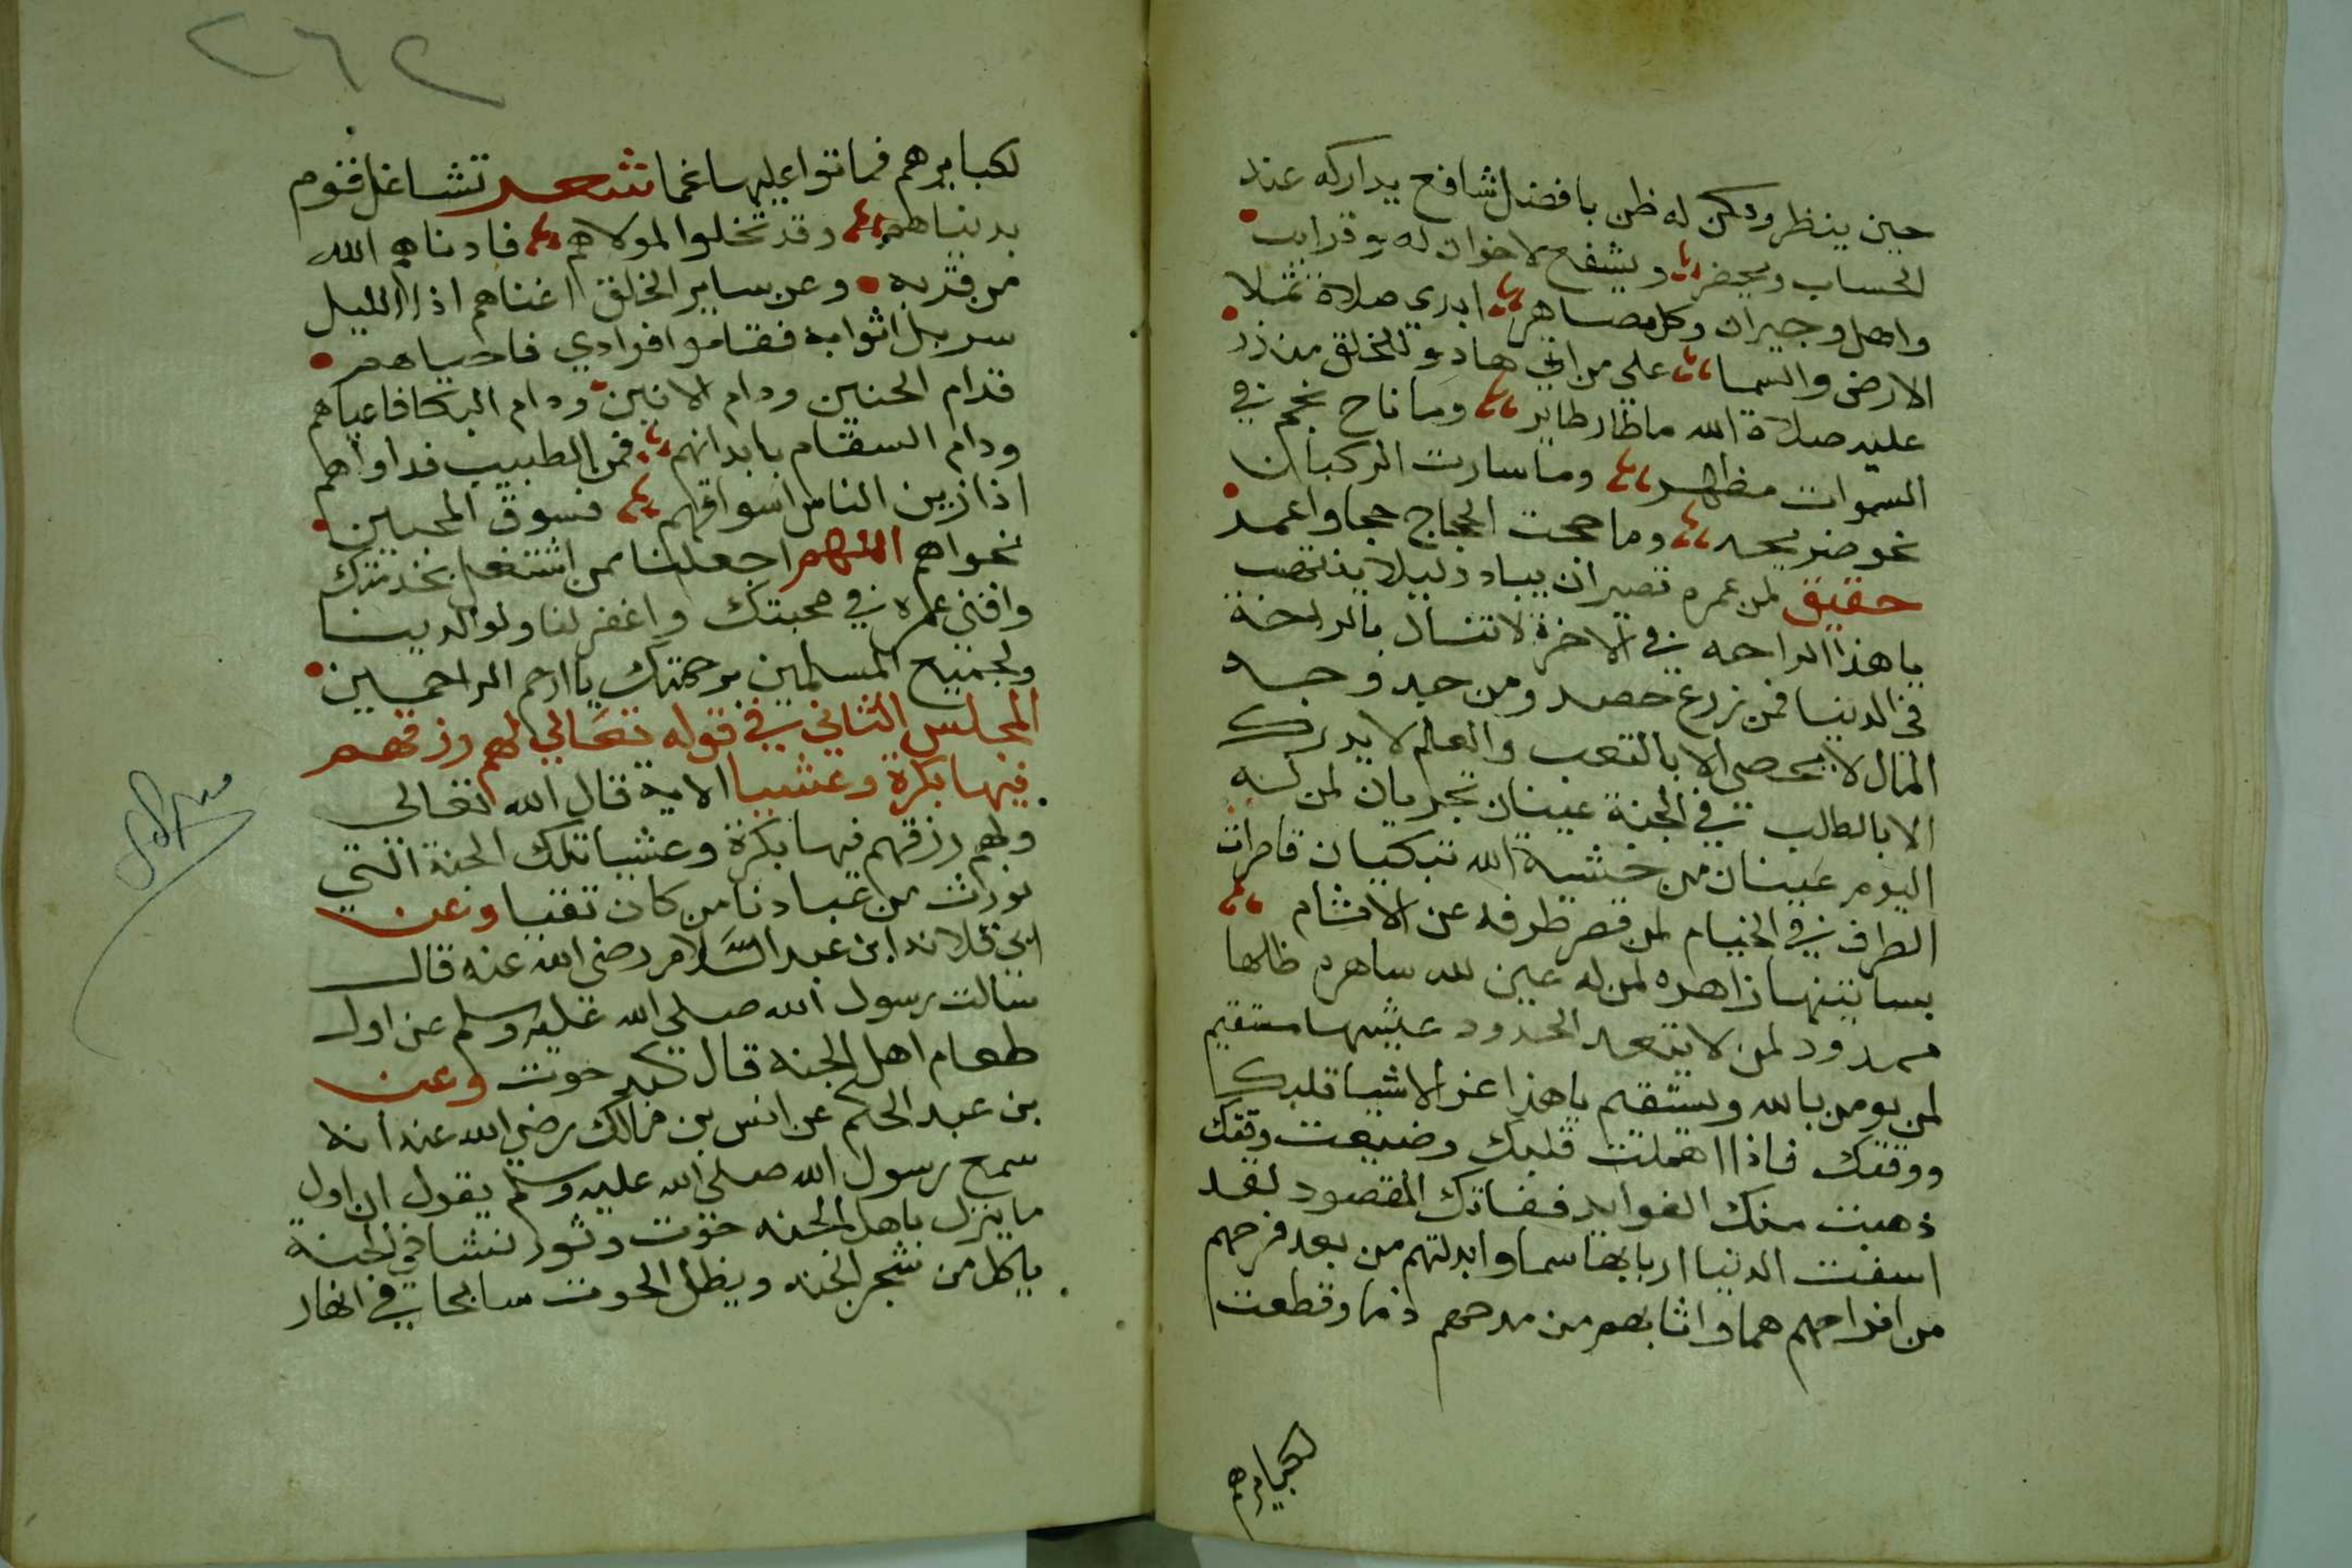 حين ينظر ويكن له ظن بافضل شافع يداركه عند
الحساب ويحضر ويشفع لاخوان له وقرايب
واهل وجيران وكل مصاهر ابدي صلاة تملا
الارض والسما علي من اتي هاد وللخلق منذر
عليه صلاة الله ماطار طاير وما لاح نجم في
السموات مظهر وما سارت الركبان
نحو ضريحه وما حجت الحجاج حجا واعمر
حقيق لمن عمره قصير ان يبادر ليلا
يا هذا الراحه في الاخرة لا تنال بالراحة
في الدنيا فمن زرع حصد ومن جد وجد
المال لا يحصي الا بالتعب والعلم لا يدرك
الا بالطلب في الجنة عينان تجريان لمن له
اليوم عينان من خشية الله تبكيان قاصرات
الطرف في الخيام لمن قصر طرفه عن الاثام
بساتينها زاهره لمن له عين لله ساهره ظلها
ممدود لمن لا يتعد الحدود عيشها مستقيم
لمن يومن بالله ويستقيم يا هذا اعز الاشيا قلبك
ووقتك فاذا اهملت قلبك وضيعت وقتك
ذهبت منك الفوايد ففاتك المقصود لقد
اسقت الدنيا اربابها سما وابدلتهم من بعد فرحهم
من افراحهم هما واثابهم من مدحهم ذما وقطعت
لكبايرهم
٢٦٢
لكبايرهم فماتوا عليها غما شعر تشاغل قوم
بدنياهم وقد تخلوا لمولاهم فادناهم الله
من قربه وعن ساير الخلق اغناهم اذا الليل
سربل اثوابه فقاموا فرادي فاحياهم
فدام الحنين ودام الانين ودام البكا فاعياهم
ودام السقام بابدانهم فمن الطبيب فداواهم
اذا زين الناس اسواقهم فسوق المحبين
نحواهم اللهم اجعلنا ممن اشتغل بخدمتك
وافني عمره في محبتك واغفر لنا ولوالدينا
ولجميع المسلمين برحمتك يا ارحم الراحمين
المجلس الثاني في قوله تعالي لهم رزقهم
فيها بكرة وعشيا الاية قال الله تعالى
ولهم رزقهم فيها بكرة وعشيا تلك الجنة التي
نورث من عبادنا من كان تقيا وعن
ابي قلانه ابن عبد السلام رضي الله عنه قال
سالت رسول الله صلي الله عليه وسلم عن اول
طعام اهل الجنه قال كبد حوت وعن
بن عبد الحكم عن انس بن مالك رضي الله عنه انه
سمع رسول الله صلي الله عليه وسلم يقول ان اول
ما ينزل باهل الجنه حوت وثور نشا في الجنة
ياكل من شجر الجنه ويظل الحوت سابحا في انهار